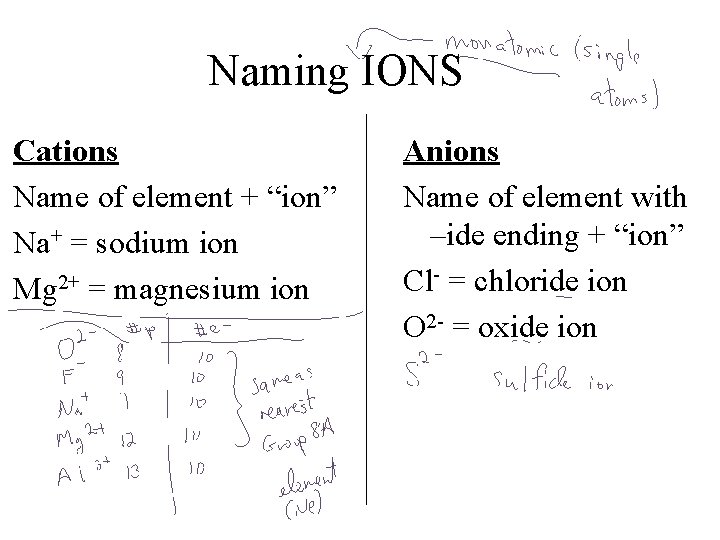 monatomic (single
atoms)
Naming IONS
Cations
Name of element + “ion”
Na+ = sodium ion
Mg2+ = magnesium ion
Anions
Name of element with
–ide ending + “ion”
Cl- = chloride ion
O2- = oxide ion
S2- sulfide ion
#p #e-
O2- 8 10
F- 9 10
Na+ 1 10
Mg2+ 12 10
Al3+ 13 10
same as
nearest
Group 8A
element
(Ne)